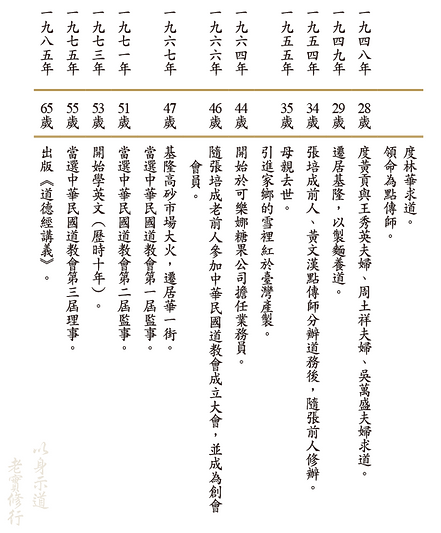 度林華求道。
領命為點傳師。
一九四八年 28歲 度黃貢與王秀英夫婦、周土祥夫婦、吳萬盛夫婦求道。
一九四九年 29歲 遷居基隆，以製麵養道。
一九五四年 34歲 張培成前人、黃文漢點傳師分辦道務後，隨張前人修辦。
一九五五年 35歲 母親去世。
引進家鄉的雪裡紅於臺灣產製。
一九六四年 44歲 開始於可樂娜糖果公司擔任業務員。
一九六六年 46歲 隨張培成老前人參加中華民國道教會成立大會，並成為創會
會員。
一九六七年 47歲 基隆高砂市場大火，遷居華一街。
當選中華民國道教會第一屆監事。
一九七一年 51歲 當選中華民國道教會第二屆監事。
一九七三年 53歲 開始學英文（歷時十年）。
一九七五年 55歲 當選中華民國道教會第三屆理事。
一九八五年 65歲 出版《道德經講義》。
以身示道
老實修行